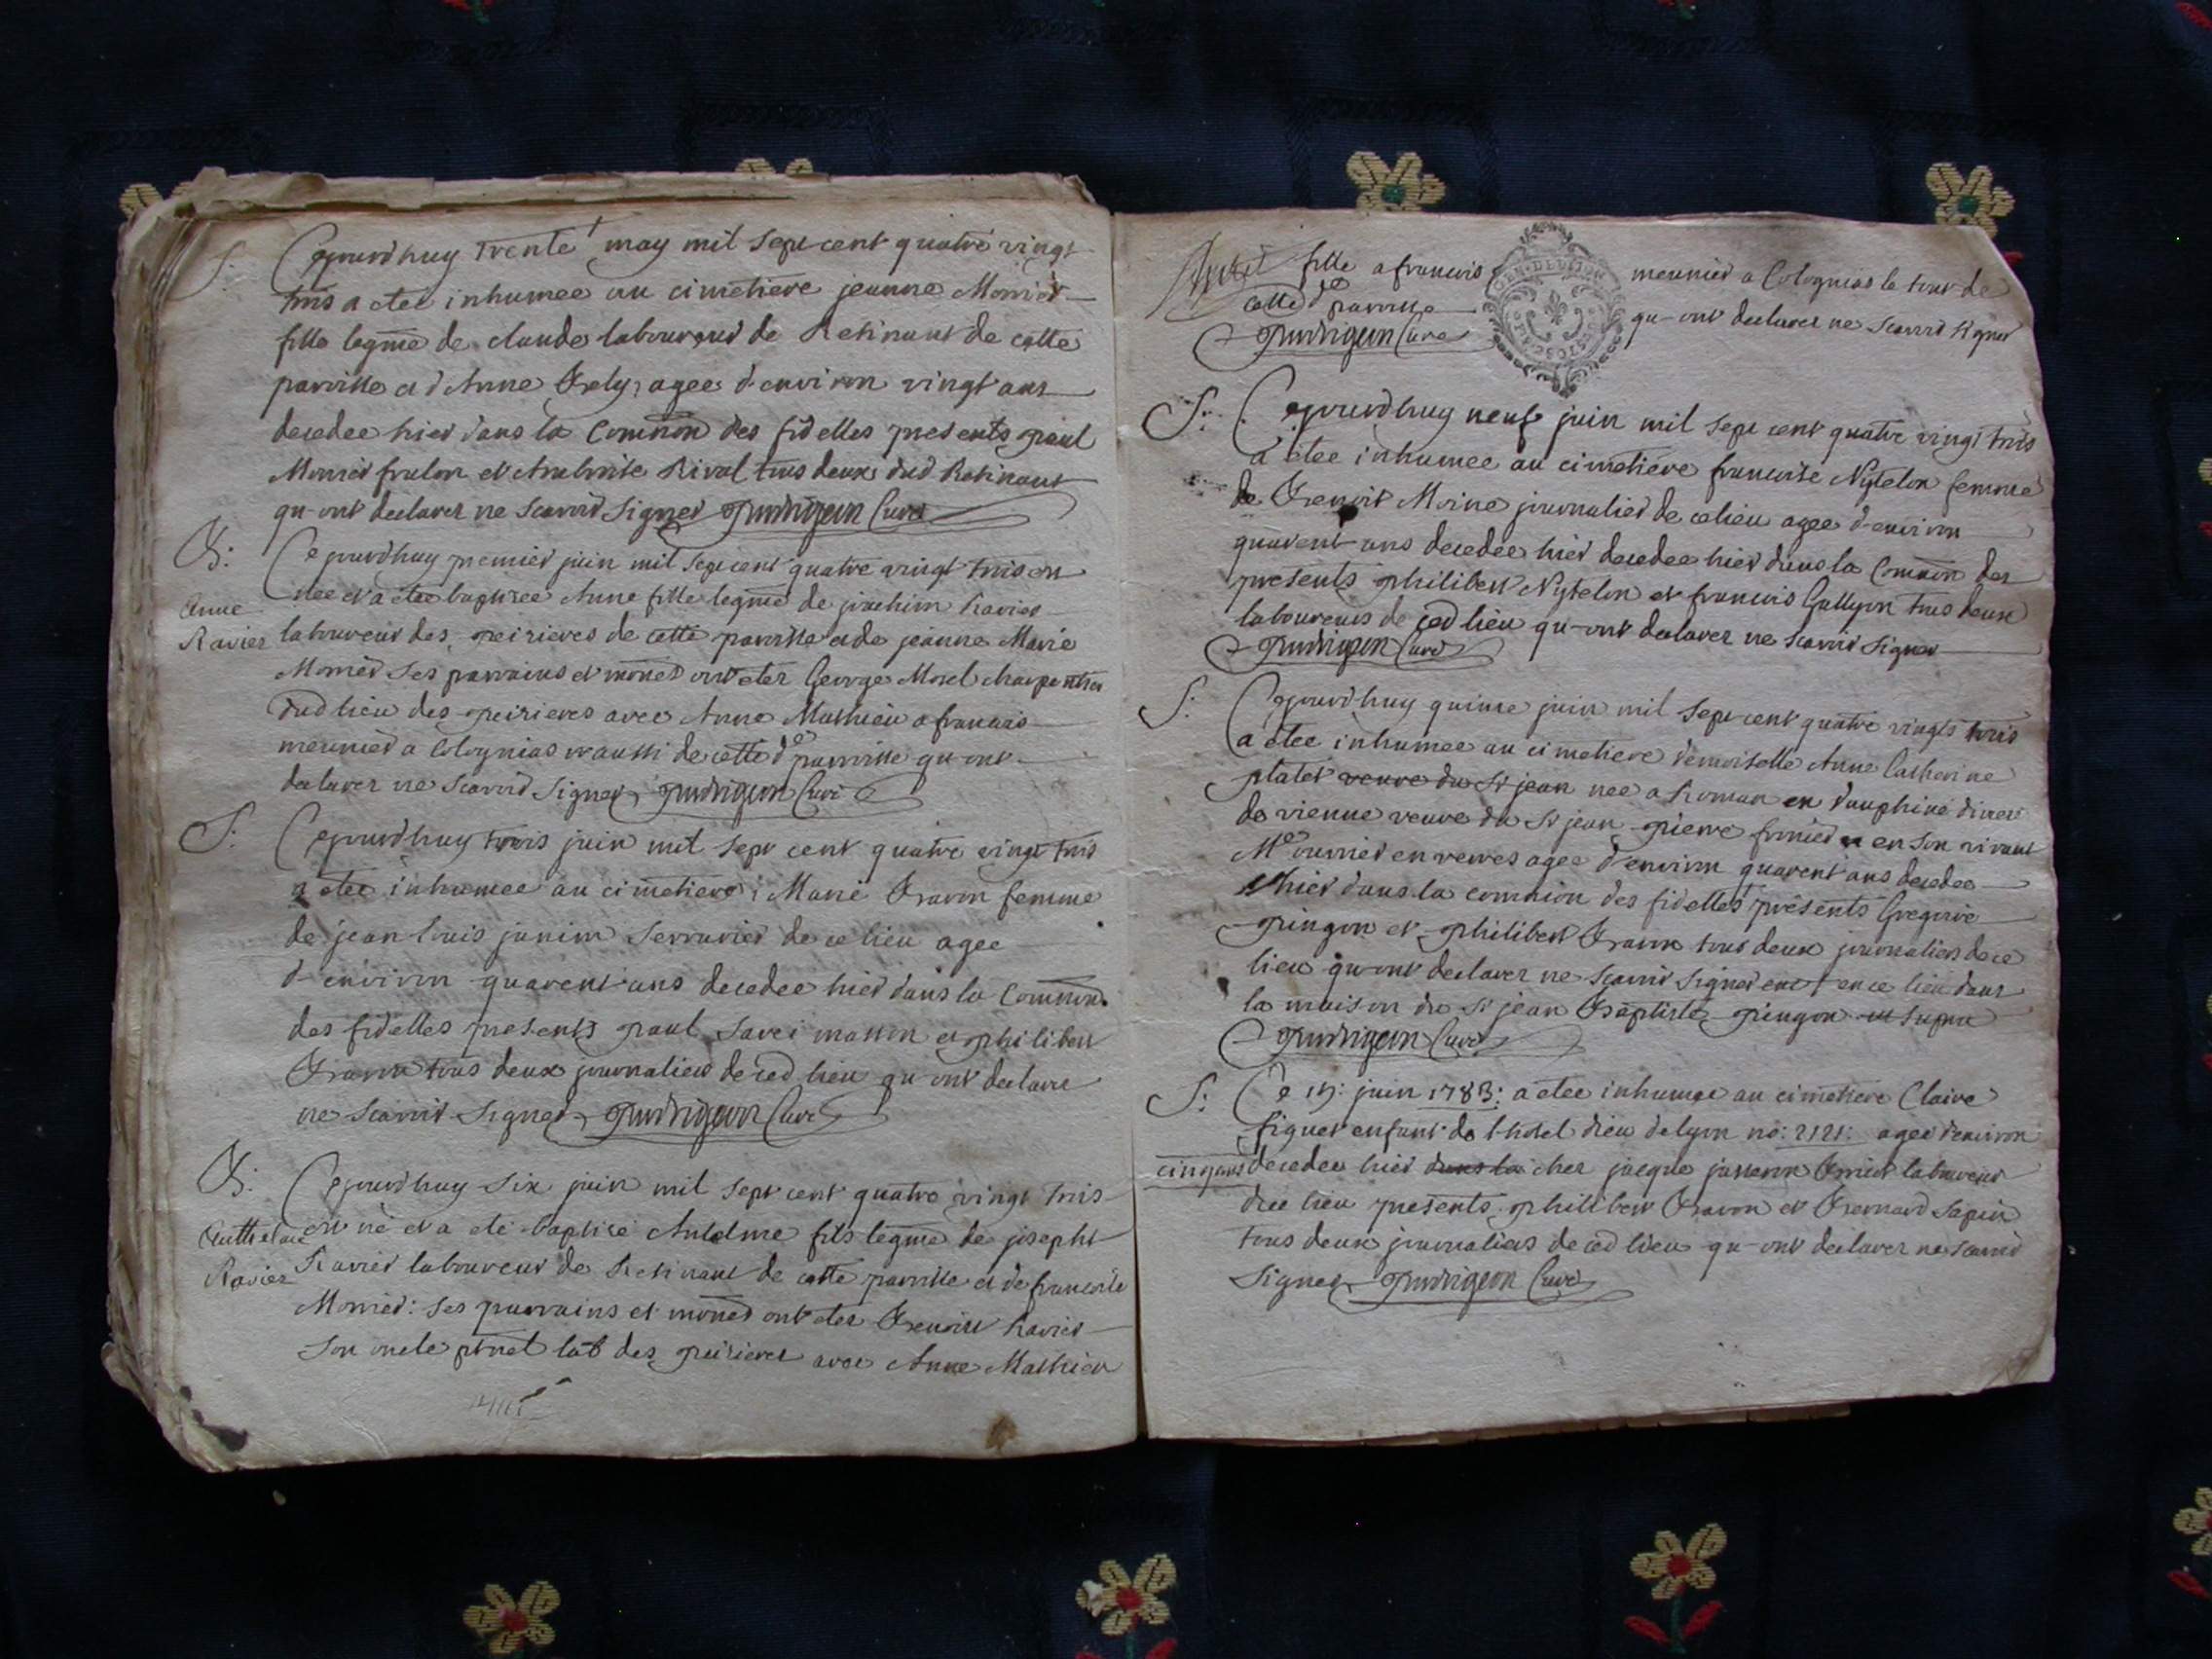 S: Cejourdhuy trente may mil sept cent quatre vingt
trois a etée inhumee au cimetiere jeanne Monier
fille legme de claude laboureur de Retinant de cette
parroisse et d'Anne agee d'environ vingt ans
decedee hier dans la Commõn des fidelles presents paul
Monier et Rival tous deux dud Retinant
qu-ont declarer ne scavoir signer Curé
B: Cejourdhuy premier juin mil sept cent quatre vingt trois est
née et a étée baptisee Anne fille legme de joachim Ravier
Anne
Ravier
laboureur des peirieres de cette parroisse et de jeanne Marie
Monier ses parrains et mones ont eter George Morel charpentier
dud lieu des peirieres avec Anne Mathieu a francois
meunier a Colognias et aussi de cette de parroisse qu-ont
declarer ne scavoir signer Curé
S: Cejourdhuy trois juin mil sept cent quatre vingt trois
a etée inhumee au cimetiere Marie Bravon femme
de jean louis janin serrurier de ce lieu agee
d'environ quarent ans decedee hier dans la Commõn
des fidelles presents paul masson et philibert
Bravon tous deux journaliers de ced lieu qu-ont declarer
ne scavoir signer Curé
B: Cejourdhuy six juin mil sept cent quatre vingt trois
est né et a eté baptisé Antelme fils legme de joseph
Anthelme
Ravier
Ravier laboureur de Retinant de cette parroisse et de francoise
Monier: ses parrains et mones ont eter Benoist Ravier
son oncle lab des peirieres avec Anne Mathieu
fille a francois meunier a Colognias le tout de
cette de parroisse qu-ont declarer ne scavoir signer
Curé
GEN. DE LYON
S: Cejourdhuy neuf juin mil sept cent quatre vingt trois
a étée inhumee au cimetiere francoise Nytelon femme
de Benoit Moine journalier de ce lieu agee d'environ
quarent ans decedee hier decedee hier dans la Commõn des
presents philibert Nytelon et francois Gallyon tous deux
laboureurs de ced lieu qu-ont declarer ne scavoir signer
Curé
S: Cejourdhuy quinze juin mil sept cent quatre vingts trois
a étée inhumee au cimetiere demoiselle Anne Catherine
platet veuve du Sr jean nee a Roman en dauphiné
de vienne veuve du Sr jean pierre en son vivant
Me ouvrier en verres agee d'environ quarent ans decedee
hier dans la commion des fidelles présents Gregoire
pingon et philibert Bravon tous deux journaliers de ce
lieu qu-ont declarer ne scavoir signer en ce lieu dans
la maison du Sr jean Baptiste pingon ut supra
Curé
S: Ce juin 1783: a étée inhumee au cimetiere Claire
figuet enfant de l-hotel dieu de lyon no: 2121: agee d'environ
cinq ans decedee hier dans la cher jacque laboureur
du lieu présents philibert Bravon et Bernard Sapin
tous deux journaliers de ced lieu qu-ont declarer ne scavoir
signer Curé